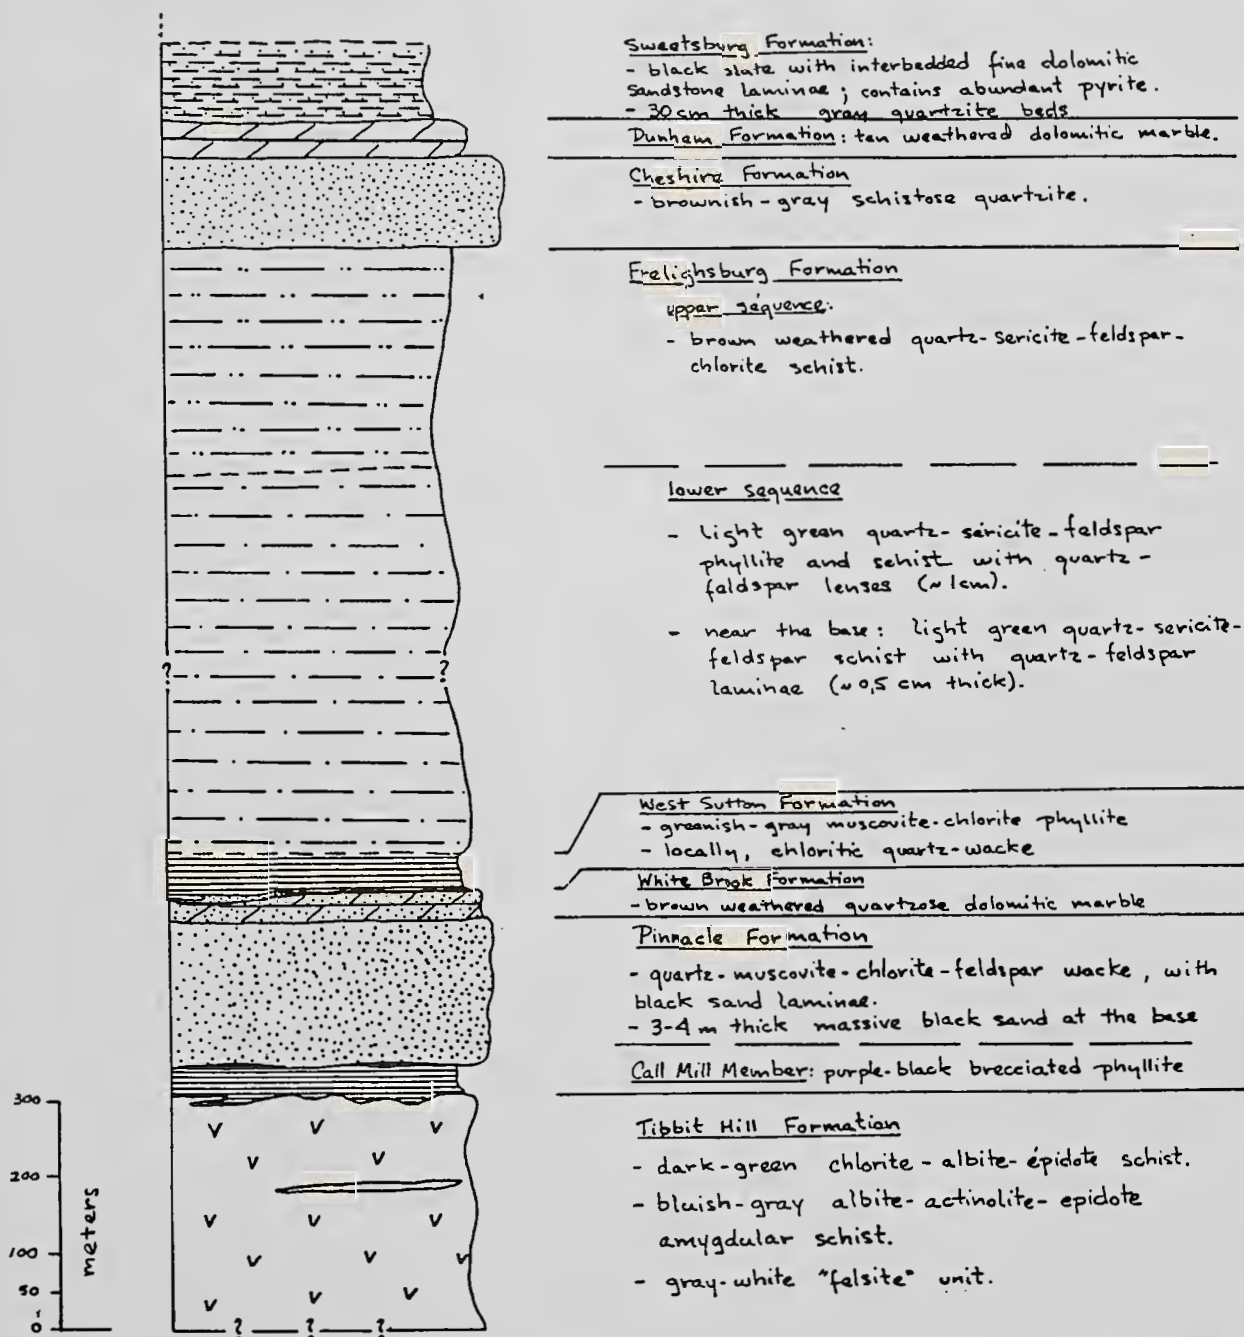 Sweetsburg Formation:
- black slate with interbedded fine dolomitic
sandstone laminae; contains abundant pyrite.
- 30cm thick gray quartzite beds
Dunham Formation: tan weathered dolomitic marble.
Cheshire Formation
- brownish-gray schistose quartzite.
Frelighsburg Formation
upper séquence:
- brown weathered quartz-sericite-feldspar-
chlorite schist.
lower sequence
- light green quartz-séricite-feldspar
phyllite and schist with quartz-
feldspar lenses (~1cm).
- near the base: light green quartz-sericite-
feldspar schist with quartz-feldspar
laminae (~0,5 cm thick).
? ?
West Sutton Formation
- greenish-gray muscovite-chlorite phyllite
- locally, chloritic quartz-wacke
White Brook Formation
- brown weathered quartzose dolomitic marble
Pinnacle Formation
- quartz-muscovite-chlorite-feldspar wacke, with
black sand laminae.
- 3-4 m thick massive black sand at the base
Call Mill Member: purple-black brecciated phyllite
Tibbit Hill Formation
- dark-green chlorite-albite-épidote schist.
- bluish-gray albite-actinolite-epidote
amygdular schist.
- gray-white "felsite" unit.
300
200
100
50
0
meters
v v v
v v
v v v
v v v
v v v
? ? ?